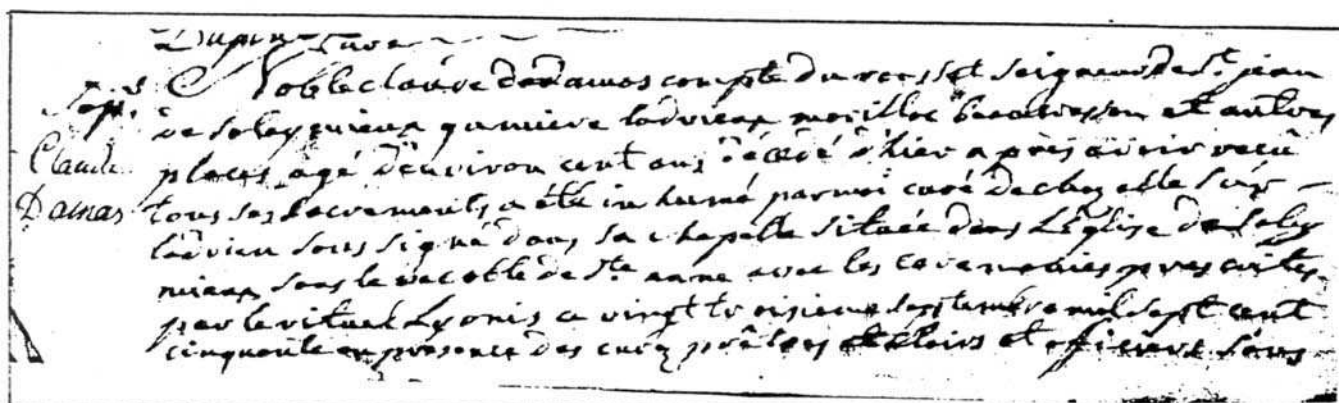 Dupuy Curé
Sep.^t Noble claude de Damas compte du rousset seigneur de S^t. jean
de Soleymieux gumiere ladvieux morillon beauvesson et autres
Claude places agé d'environ cent ans décédé d'hier après avoir reçû
Damas tous ses sacrements a été inhumé par moi curé de chazelle sur
ladvieu sous signé dans sa chapelle située dans L'Eglise de Soley
mieux sous le vocable de S^te anne avec les ceremonies prescrites
par le rituel Lyonis ce vingt troisieme Septembre mil sept cent
cinquante en presence des curés prêtres et officiers sous